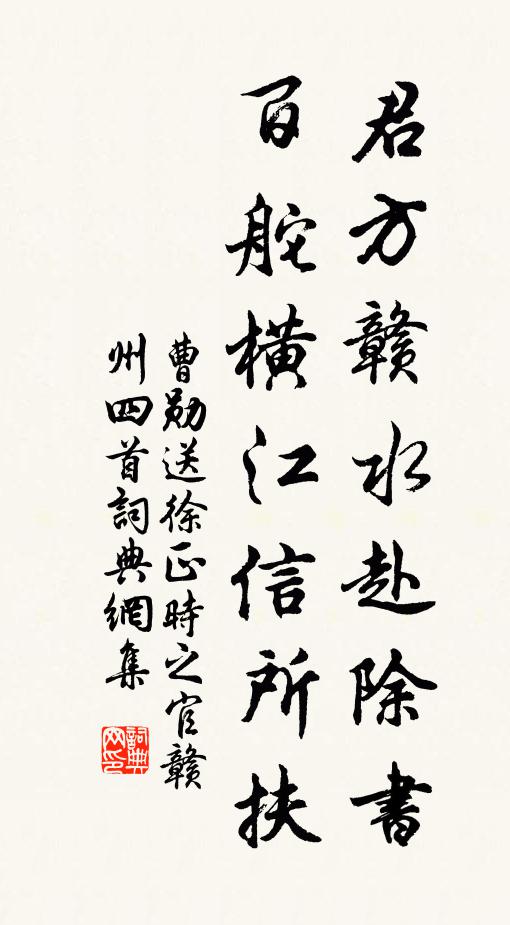 君方赣水赴除書
百舵橫江信所扶
曹勛送徐正時之官赣
州四首詞典網集
詞典网印